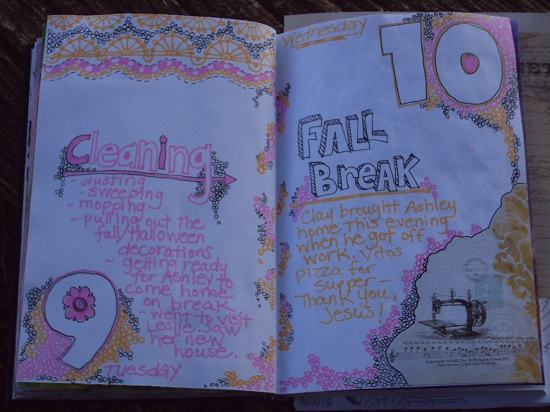 Cleaning
- dusting
- sweeping
- mopping
- pulling out the
fall/Halloween
decorations
- getting ready
for Ashley to
come home
on break
- went to visit
Leslie. Saw
her new
house.
9
Tuesday
Wednesday
10
FALL
BreaK
Clay brought Ashley
home this evening
when he got off
work. Vitos
pizza for
supper-
Thank you,
Jesus!